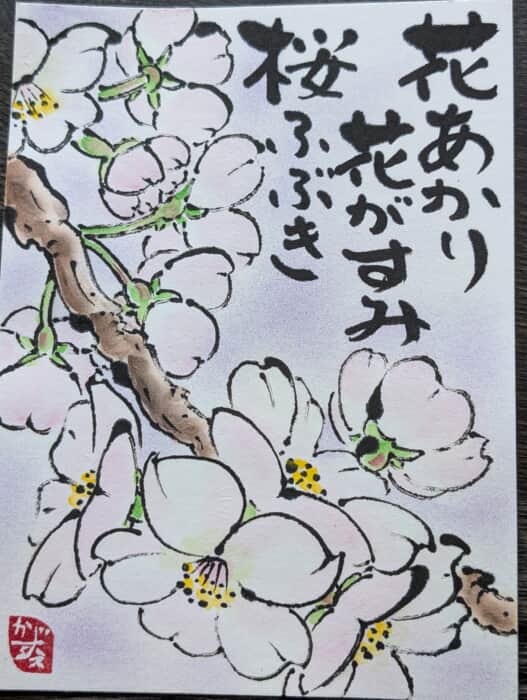 花あかり
花がすみ
桜ふぶき
かず